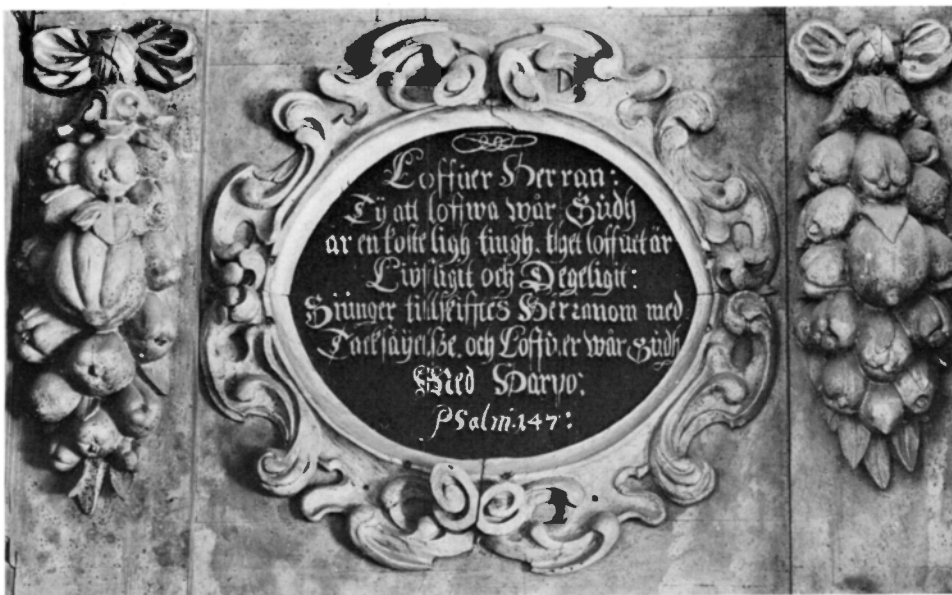 Loffuer Herran:
Ty att loffwa wår Gudh
är en kosteligh tingh. thet loffuet är
Liufligit och Degeligit:
Siunger tillskifftes Herranom med
Tacksäyelße, och Loffuer wår Gudh
Med Harpo:
Psalm. 147: